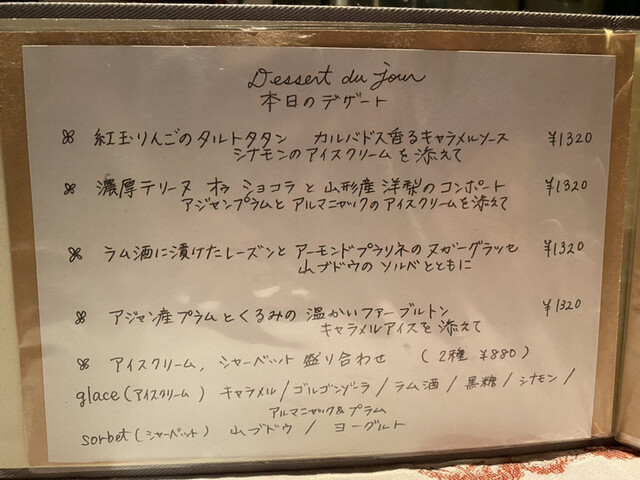 Dessert du jour
本日のデザート
紅玉りんごのタルトタタン カルバドス香るキャラメルソース ¥1320
シナモンのアイスクリームを添えて
濃厚テリーヌ オゥ ショコラと山形産洋梨のコンポート ¥1320
アジャンプラムとアルマニャックのアイスクリームを添えて
ラム酒に漬けたレーズンとアーモンドプラリネのヌガーグラッセ ¥1320
山ブドウのソルベとともに
アジャン産プラムとくるみの温かいファーブルトン ¥1320
キャラメルアイスを添えて
アイスクリーム, シャーベット盛り合わせ (2種 ¥880)
glace(アイスクリーム) キャラメル/ゴルゴンゾーラ/ラム酒/黒糖/シナモン/
アルマニャック&プラム
sorbet(シャーベット) 山ブドウ / ヨーグルト